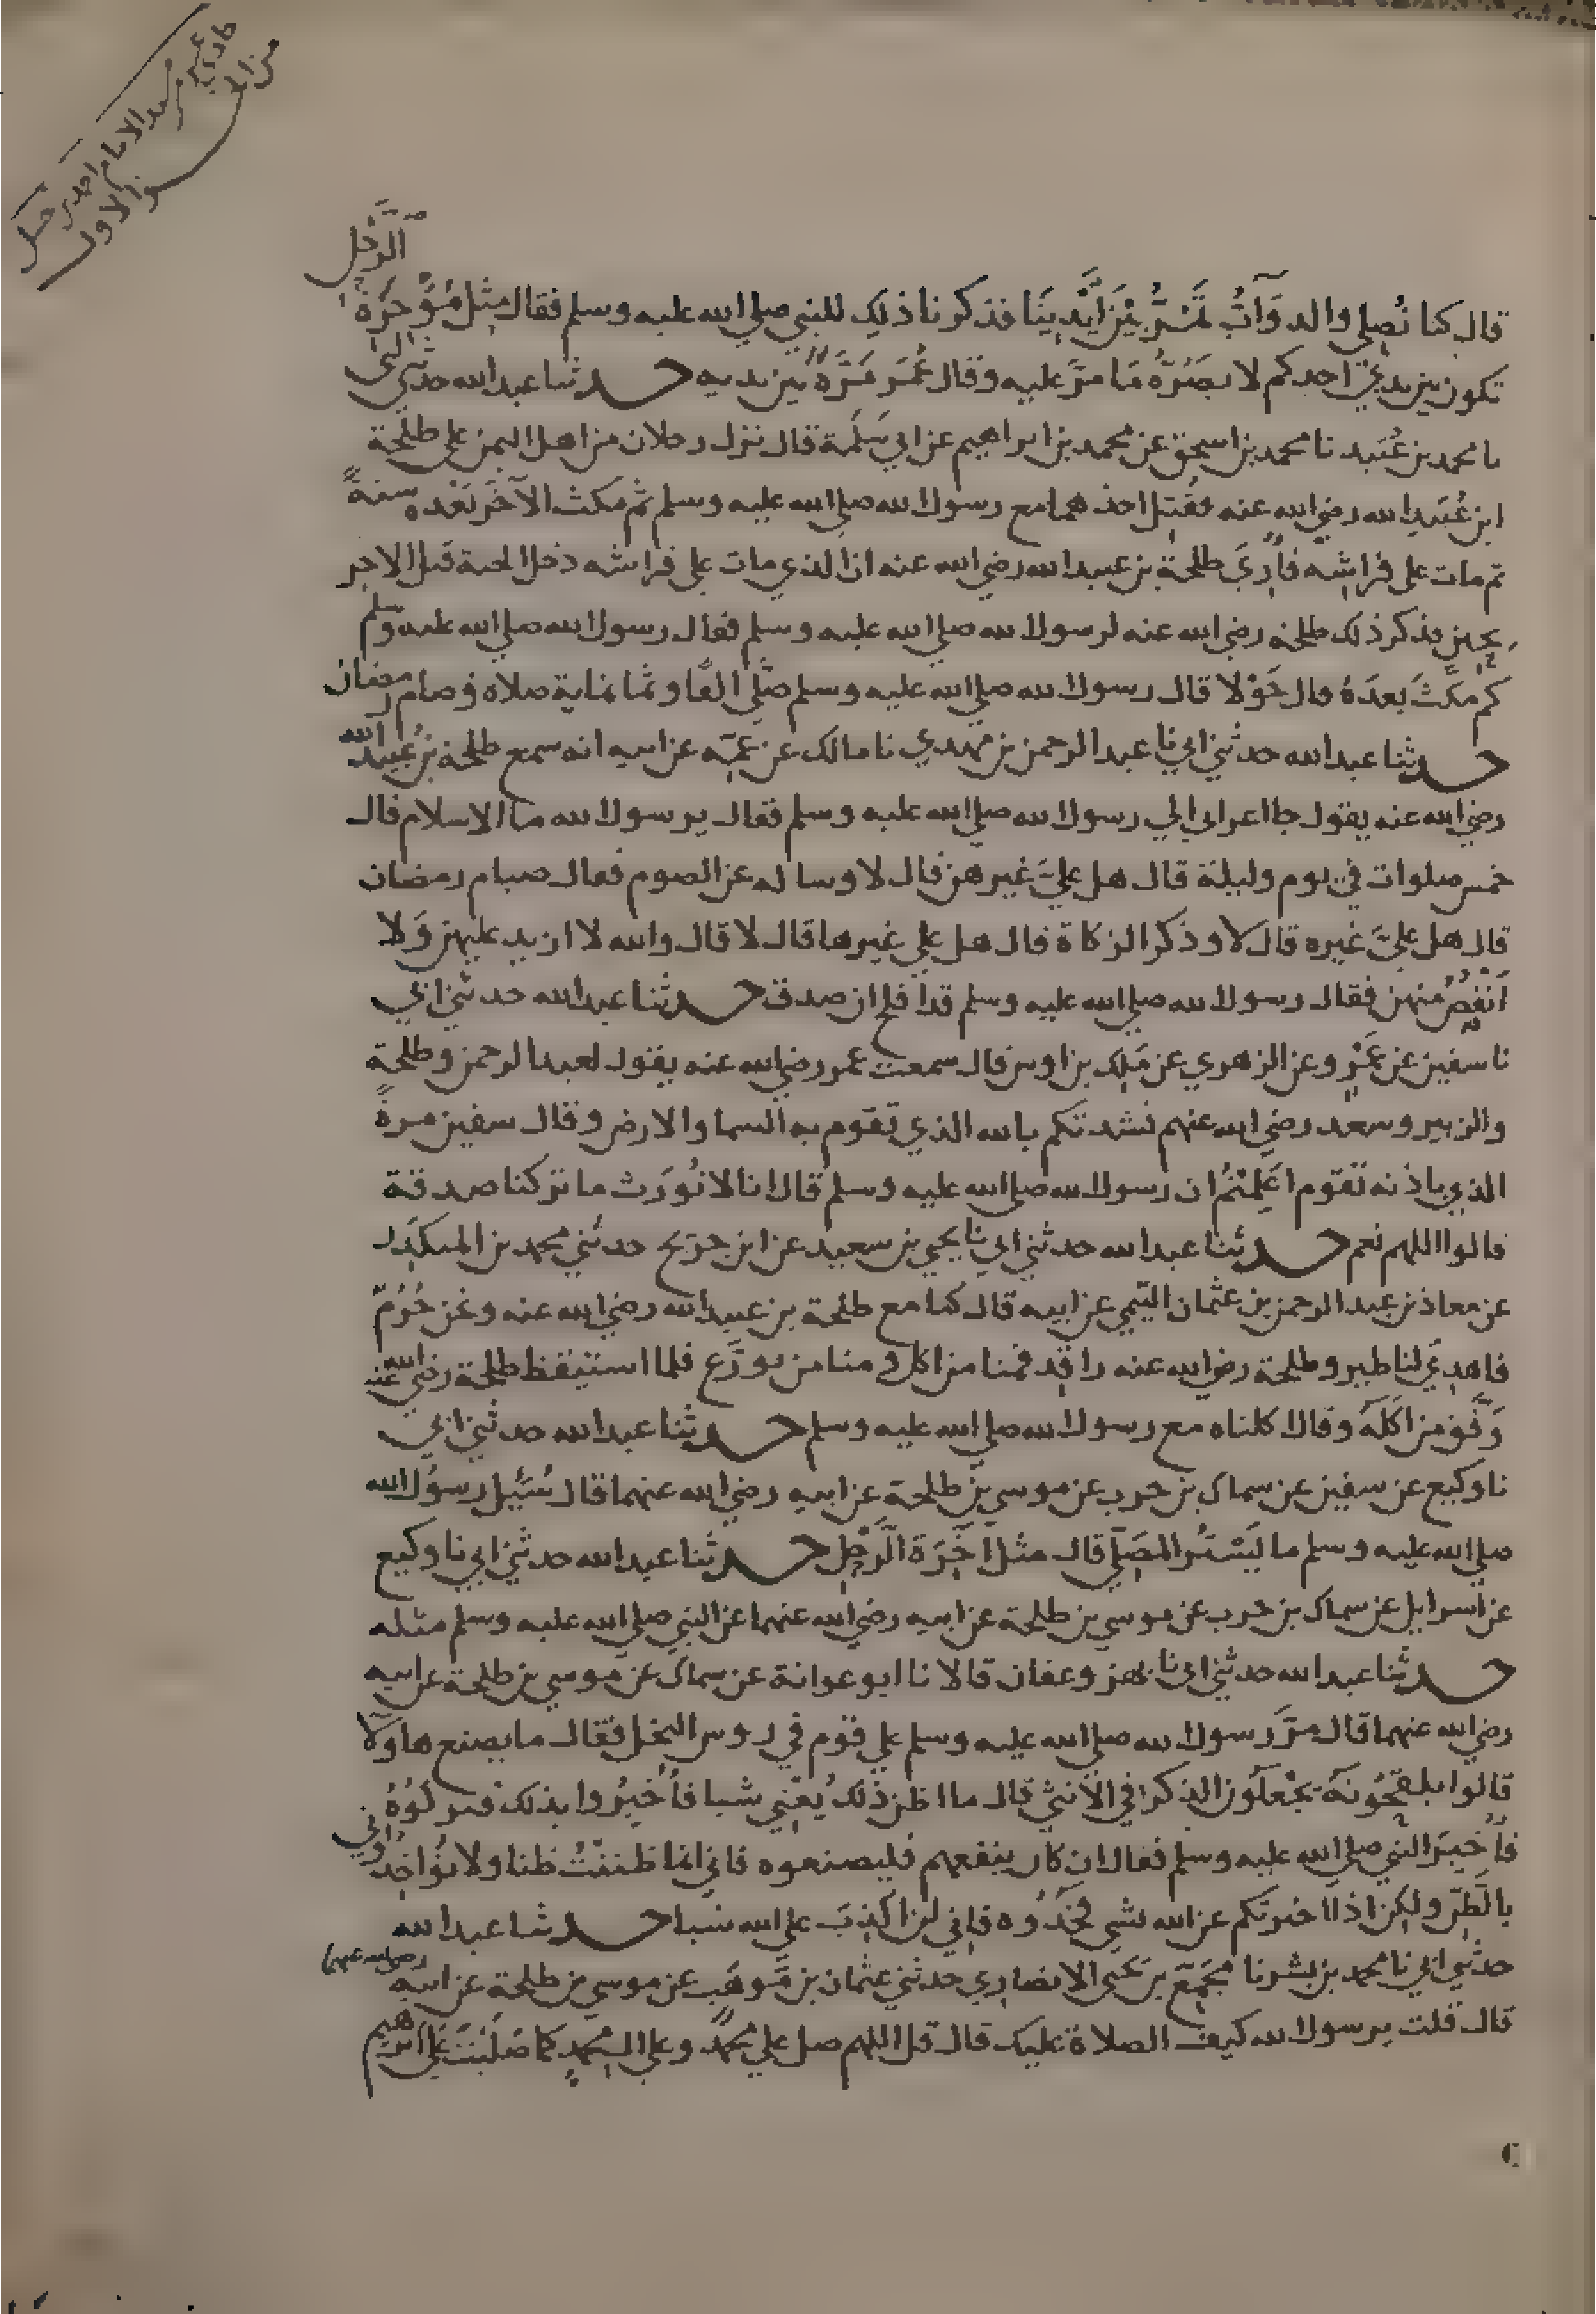 حادي عشر من مسند الامام احمد بن حنبل
من الاول
الرَّحْل
قال كنا نُصلي والدوَآبُّ تَمُرُّ بَيْنَ اَيْدِينَا فذكرنا ذلك للنبي صلي الله عليه وسلم فقال مِثل مُؤْخِرَةِ
تكون بين يدَيْ احدكم لا يضُرُّهُ مَا مرَّ عليه وقال عُمَر مَرَّةً بين يديه حدثنا عبدالله حدثني ابي
نا محمد بن عُبَيد نا محمد بن اسحق عن محمد بن ابراهيم عن ابي سَلَمَة قال نزل رجلان من اهل اليمن على طلحة
ابن عُبَيدِ الله رضي الله عنه فقُتِل احدهما مع رسول الله صلي الله عليه وسلم ثم مكث الآخَر بَعْده سنةً
ثم مات على فراشِه فأُرِيَ طلحةُ بن عبيدالله رضي الله عنه ان الذي مات على فراشه دخل الجنة قبل الاخر
بحين فذكر ذلك طلحة رضي الله عنه لرسول الله صلي الله عليه وسلم فقال رسول الله صلي الله عليه وسلم
كم مكَثَ بعدَهُ قال حَوْلا قال رسول الله صلي الله عليه وسلم صَلَّى الفًا وثمانماية صلاة وصام رمضان
حدثنا عبدالله حدثني ابي نا عبد الرحمن بن مَهدي نا مالك عن عَمِّه عن ابيه انه سمع طلحة بن عُبيدالله
رضي الله عنه يقول جا اعرابي الي رسول الله صلي الله عليه وسلم فقال يرسول الله ما الاسلام قال
خمس صلوات في يوم وليلة قال هل عليَّ غيرهن قال لا وساله عن الصوم فقال صيام رمضان
قال هل عليَّ غيره قال لا وذكر الزكاة قال هل علي غيرها قال لا قال والله لا ازيد عليهن وَلا
اَنْقُصُ منهن فقال رسول الله صلي الله عليه وسلم قد افلح ان صدق حدثنا عبدالله حدثني ابي
نا سفين عن عَمْرٍو عن الزهري عن مَلِك بن اوس قال سمعت عمر رضي الله عنه يقول لعبد الرحمن وطلحة
والزبير وسعد رضي الله عنهم نشدتكم بالله الذي تقوم به السما والارض وقال سفين مرةً
الذي باذنه تقوم اعَلِمْتُمْ ان رسول الله صلي الله عليه وسلم قال انا لا نُورَث ما تركنا صدقة
قالوا اللهم نعم حدثنا عبدالله حدثني ابي نا يحيي بن سعيد عن ابن جريج حدثني محمد بن المنكَدِر
عن معاذ بن عبد الرحمن بن عثمان التيمي عن ابيه قال كنا مع طلحة بن عبيدالله رضي الله عنه ونحن حُرُمٌ
فاهدِيَ لنا طير وطلحة رضي الله عنه راقد فمنا من اكل ومنا من تورَّع فلما استيقظ طلحة رضي الله عنه
وَفَّقَ من اكلَهُ وقال اكلناه مع رسول الله صلي الله عليه وسلم حدثنا عبدالله حدثني ابي
نا وكيع عن سفين عن سماك بن حرب عن موسي بن طلحة عن ابيه رضي الله عنهما قال سُئِيل رسولُ الله
صلي الله عليه وسلم ما يَسْتُر المصَلِّي قال مثل آخِرَة الرَّحْلِ حدثنا عبدالله حدثني ابي نا وكيع
عن اسرايل عن سماك بن حرب عن موسي بن طلحة عن ابيه رضي الله عنهما عن النبي صلي الله عليه وسلم مثله
حدثنا عبدالله حدثني ابي نا بهز وعفان قالا نا ابو عوانة عن سماك عن موسي بن طلحة عن ابيه
رضي الله عنهما قال مرَّ رسول الله صلي الله عليه وسلم علي قوم في روس النخل فقال ما يصنع هاولا
قالوا يلقحُونَهُ يجْعلُون الذكر في الانثي قال ما اظن ذلك يُغْنِي شيا فأُخبِرُوا بذلك فتركُوهُ
فأُخبِرَ النبي صلي الله عليه وسلم فقال ان كان ينفعهم فليصنعوه فاني انما ظننْتُ ظنا ولا تؤاخذوني
بالظَّنِّ ولكن اذا اخبرتكم عن الله بشي فخذُوه فاني لن اكذِبَ علي الله شيا حدثنا عبدالله
حدثني ابي نا محمد بن بشر نا مجَمِّع بن يحيي الانصاري حدثني عثمان بن مَوهَب عن موسي بن طلحة عن ابيه رضي الله عنهما
قال قلت يرسول الله كيف الصلاة عليك قال قل اللهم صل علي محمدٍ وعلي ال محمدٍ كما صَلَّيْتَ عَلَي ابرهيم